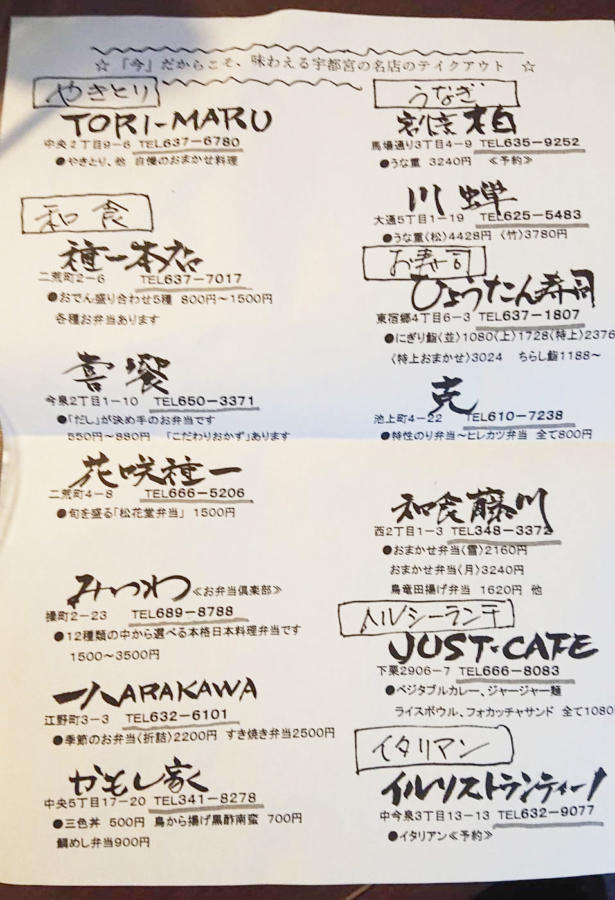 ☆「今」だからこそ、味わえる宇都宮の名店のテイクアウト ☆
やきとり
TORI-MARU
中央2丁目9-6 TEL637-6780
●やきとり、他 自慢のおまかせ料理
和食
種一本店
二荒町2-6 TEL637-7017
●おでん盛り合わせ5種 800円〜1500円
各種お弁当あります
喜饗
今泉2丁目1-10 TEL650-3371
●「だし」が決め手のお弁当です
550円〜880円 「こだわりおかず」あります
花咲種一
二荒町4-8 TEL666-5206
●旬を盛る「松花堂弁当」 1500円
みつわ ≪お弁当倶楽部≫
操町2-23 TEL689-8788
●12種類の中から選べる本格日本料理弁当です
1500〜3500円
一八ARAKAWA
江野町3-3 TEL632-6101
●季節のお弁当〈折詰〉2200円 すき焼き弁当2500円
かもし家
中央5丁目17-20 TEL341-8278
●三色丼 500円 鳥から揚げ黒酢南蛮 700円
鯛めし弁当900円
うなぎ
割烹 柏
馬場通り3丁目4-9 TEL635-9252
●うな重 3240円 ≪予約≫
川蝉
大通5丁目1-19 TEL625-5483
●うな重〈松〉4428円 〈竹〉3780円
お寿司
ひょうたん寿司
東宿郷4丁目6-3 TEL637-1807
●にぎり鮨〈並〉1080〈上〉1728〈特上〉2376
〈特上おまかせ〉3024 ちらし鮨1188〜
克
池上町4-22 TEL610-7238
●特性のり弁当〜ヒレカツ弁当 全て800円
和食藤川
西2丁目1-3 TEL348-3372
●おまかせ弁当〈雪〉2160円
おまかせ弁当〈月〉3240円
鳥竜田揚げ弁当 1620円 他
ヘルシーランチ
JUST・CAFE
下栗2906-7 TEL666-8083
●ベジタブルカレー、ジャージャー麺
ライスボウル、フォカッチャサンド 全て1080
イタリアン
イルリストランティーノ
中今泉3丁目13-13 TEL632-9077
●イタリアン≪予約≫